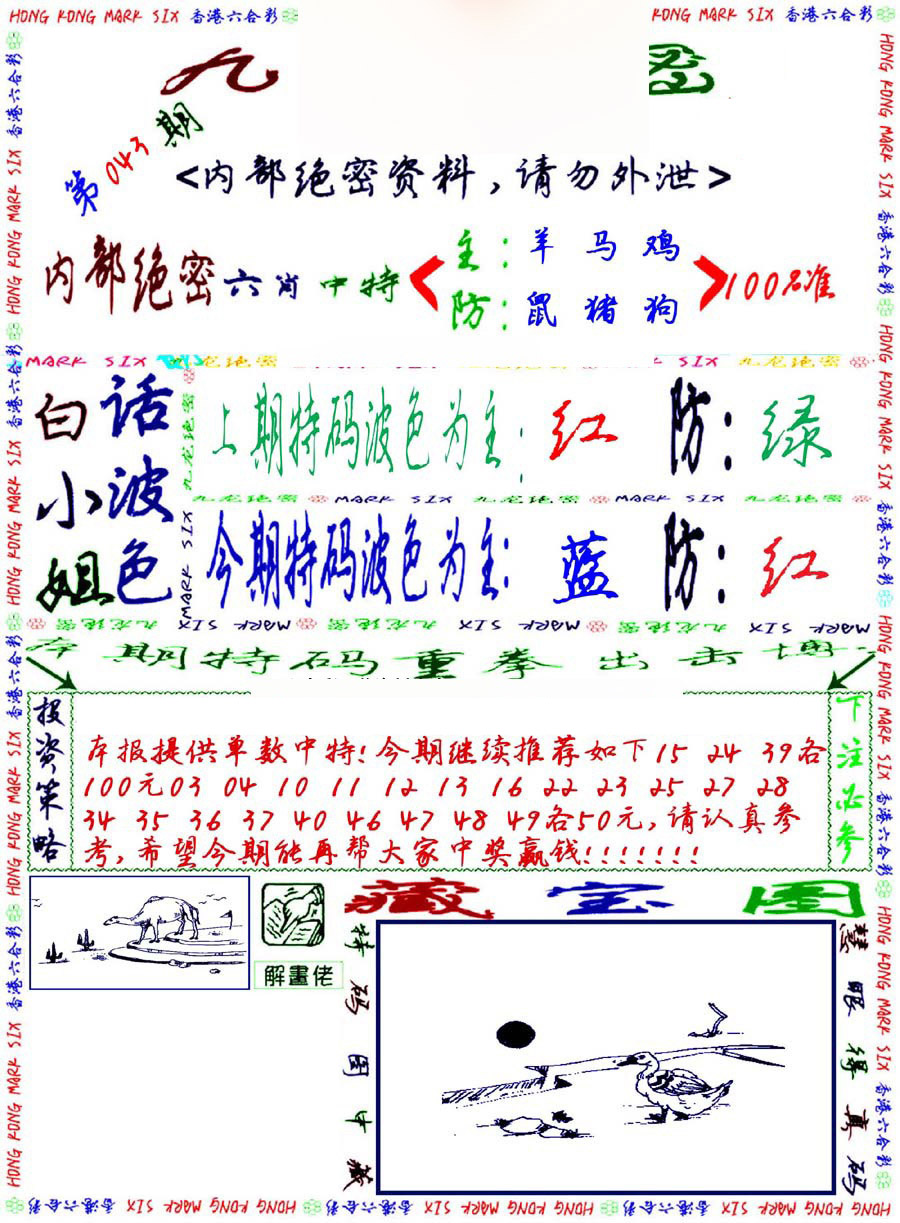 HONG KONG MARK SIX 香港六合彩
KONG MARK SIX 香港六合彩
九
密
第043期
<内部绝密资料，请勿外泄>
内部绝密六肖中特
主：羊 马 鸡
防：鼠 猪 狗
100%准
MARK SIX 九龙绝密
SIX 九龙绝密
白话
小波
姐色
上期特码波色为主：红 防：绿
九龙绝密 MARK SIX 九龙绝密 MARK SIX 九龙绝密
今期特码波色为主：蓝 防：红
九龙绝密 MARK SIX 九龙绝密 MARK SIX 九龙绝密 MARK SIX
期特码重拳出击
投资策略
本报提供单数中特!今期继续推荐如下15 24 39各
100元03 04 10 11 12 13 16 22 23 25 27 28
34 35 36 37 40 46 47 48 49各50元，请认真参
考，希望今期能再帮大家中奖赢钱!!!!!!!
下注必参
解畫佬
藏宝图
特码图中藏
慧眼得真码
HONG KONG MARK SIX 香港六合彩